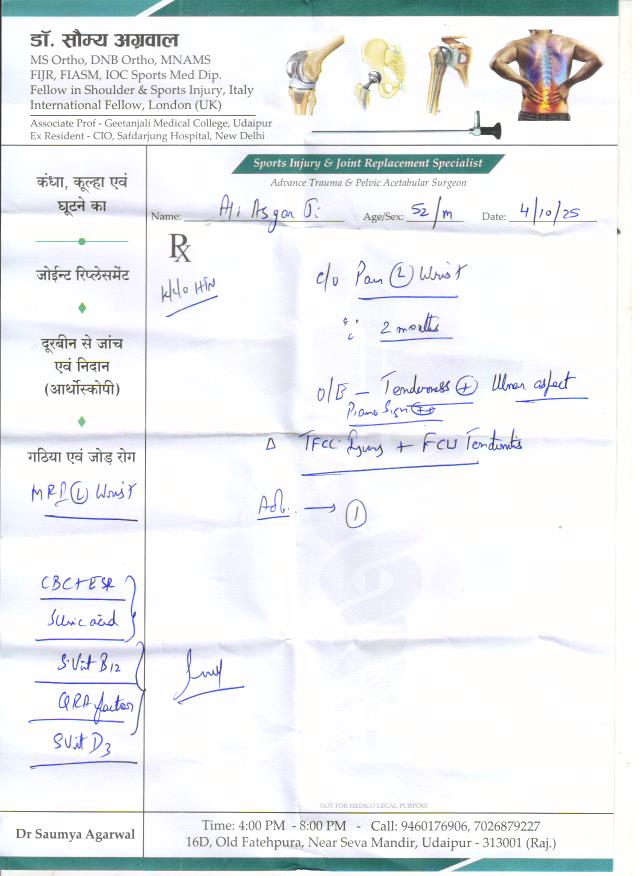 डॉ. सौम्य अग्रवाल
MS Ortho, DNB Ortho, MNAMS
FIJR, FIASM, IOC Sports Med Dip.
Fellow in Shoulder & Sports Injury, Italy
International Fellow, London (UK)
Associate Prof - Geetanjali Medical College, Udaipur
Ex Resident - CIO, Safdarjung Hospital, New Delhi
Sports Injury & Joint Replacement Specialist
Advance Trauma & Pelvic Acetabular Surgeon
Name: Ali Asgar Ji Age/Sex: 52/m Date: 4/10/25
कंधा, कूल्हा एवं
घूटने का
जोईन्ट रिप्लेसमेंट
दूरबीन से जांच
एवं निदान
(आर्थोस्कोपी)
गठिया एवं जोड़ रोग
MRI (L) Wrist
CBC + ESR
S. Uric acid
S. Vit B12
QRA factor
S Vit D3
Rx
K/C/O HTN
c/o Pain (L) Wrist
2 months
O/E - Tenderness (+) Ulnar aspect
Piano Sign
Δ TFCC Injury + FCU Tendinitis
Adv. → (1)
NOT FOR MEDICO LEGAL PURPOSE
Dr Saumya Agarwal
Time: 4:00 PM - 8:00 PM - Call: 9460176906, 7026879227
16D, Old Fatehpura, Near Seva Mandir, Udaipur - 313001 (Raj.)